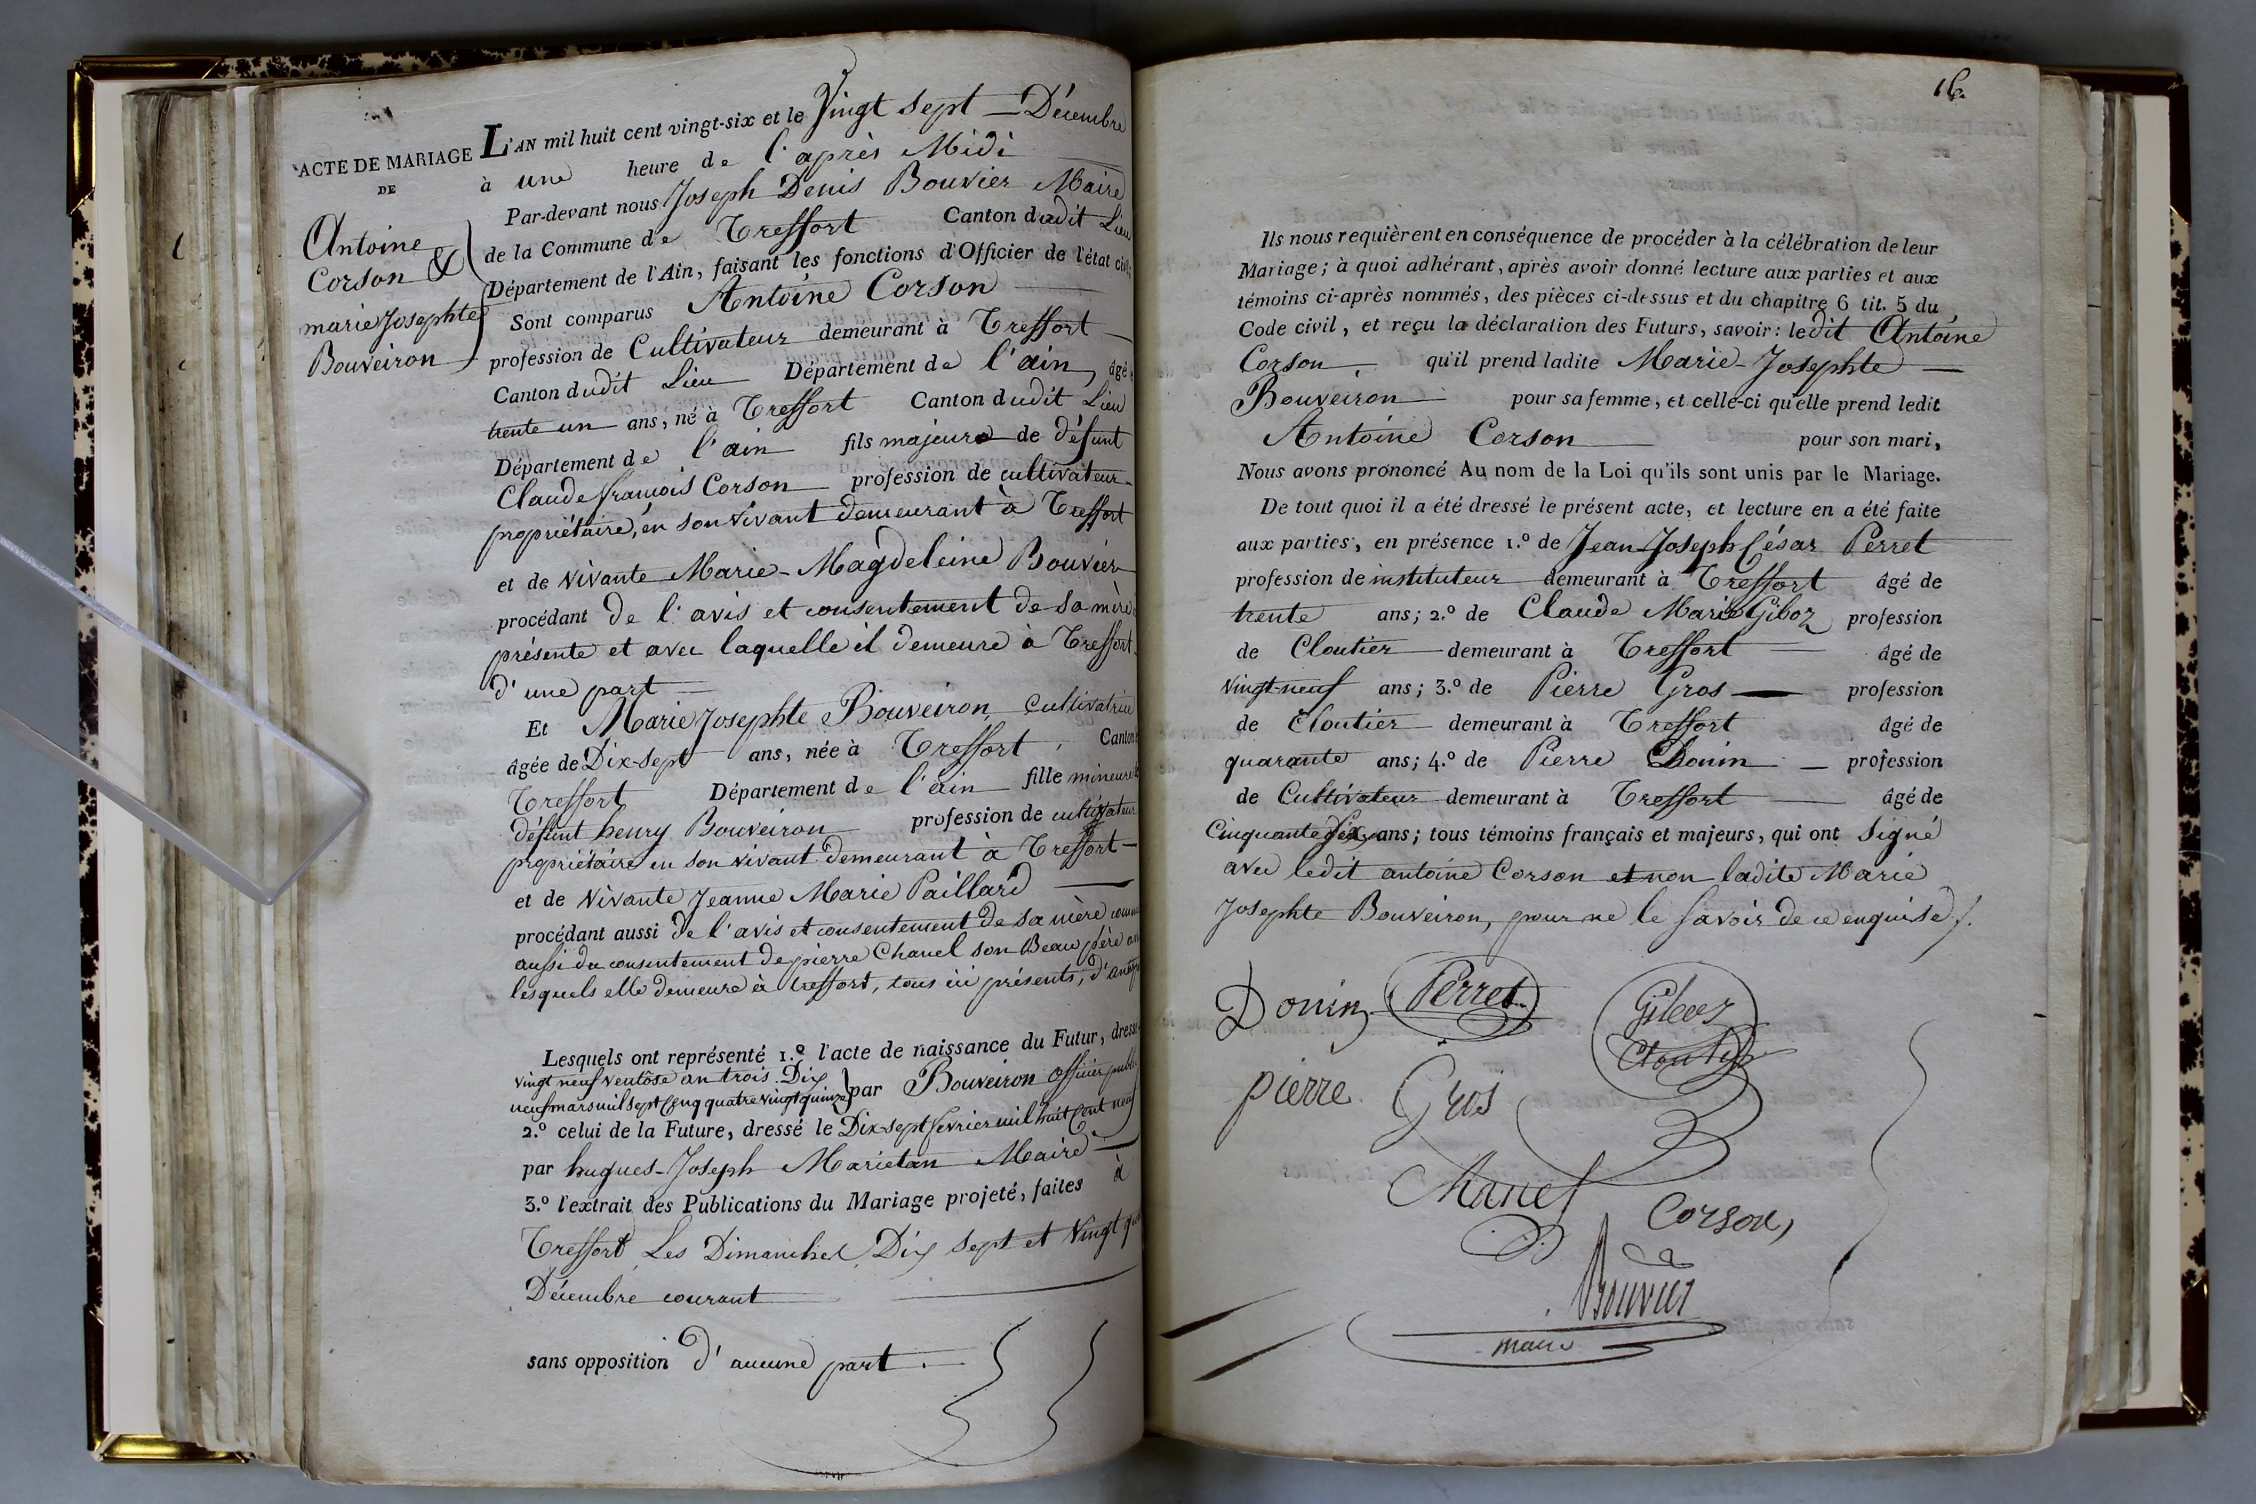 ACTE DE MARIAGE
DE
Antoine
Corson &
marie Josephte
Bouveiron
L'AN mil huit cent vingt-six et le Vingt sept Décembre
à une heure de l'après Midi
Par-devant nous Joseph Denis Bouvier Maire
de la Commune de Treffort Canton dudit Lieu
Département de l'Ain, faisant les fonctions d'Officier de l'état civil
Sont comparus Antoine Corson
profession de Cultivateur demeurant à Treffort
Canton dudit Lieu Département de l'ain, âgé
trente un ans, né à Treffort Canton dudit Lieu
Département de l'ain fils majeur de défunt
Claude françois Corson profession de cultivateur
propriétaire, en son vivant demeurant à Treffort
et de vivante Marie-Magdeleine Bouvier
procédant de l'avis et consentement de sa mère
présente et avec laquelle il demeure à Treffort
d'une part
Et Marie Josephte Bouveiron, Cultivatrice
âgée de Dix-sept ans, née à Treffort, Canton
Treffort Département de l'ain fille mineure
défunt henry Bouveiron profession de cultivateur
propriétaire en son vivant demeurant à Treffort
et de vivante Jeanne Marie Paillard
procédant aussi de l'avis et consentement de sa mère comme
aussi du consentement de pierre Chanel son Beau père
lesquels elle demeure à treffort, tous ici présents, d'autre
Lesquels ont représenté 1.º l'acte de naissance du Futur, dressé
vingt neuf ventôse an trois Dix
neuf mars mil sept Cenq quatre vingt quinze } par Bouveiron officier public
2.º celui de la Future, dressé le Dix-sept fevrier mil huit Cent neuf
par hugues-Joseph Marietan Maire
3.º l'extrait des Publications du Mariage projeté, faites à
Treffort Les Dimanches Dix sept et Vingt
Décembre courant
sans opposition d'aucune part.
16.
Ils nous requièrent en conséquence de procéder à la célébration de leur
Mariage; à quoi adhérant, après avoir donné lecture aux parties et aux
témoins ci-après nommés, des pièces ci-dessus et du chapitre 6 tit. 5 du
Code civil, et reçu la déclaration des Futurs, savoir: ledit Antoine
Corson, qu'il prend ladite Marie-Josephte
Bouveiron pour sa femme, et celle-ci qu'elle prend ledit
Antoine Corson pour son mari,
Nous avons prononcé Au nom de la Loi qu'ils sont unis par le Mariage.
De tout quoi il a été dressé le présent acte, et lecture en a été faite
aux parties, en présence 1.º de Jean Joseph César Perret
profession de instituteur demeurant à Treffort âgé de
trente ans; 2.º de Claude Marie Giboz profession
de Cloutier demeurant à Treffort âgé de
vingt-neuf ans; 3.º de Pierre Gros profession
de Cloutier demeurant à Treffort âgé de
quarante ans; 4.º de Pierre Donin profession
de Cultivateur demeurant à Treffort âgé de
Cinquante six ans; tous témoins français et majeurs, qui ont signé
avec ledit antoine Corson et non ladite Marie
Josephte Bouveiron, pour ne le savoir de ce enquise.
Donin Perret Giboz
Cloutier
pierre Gros
Chanel
Corson
Bouvier
maire